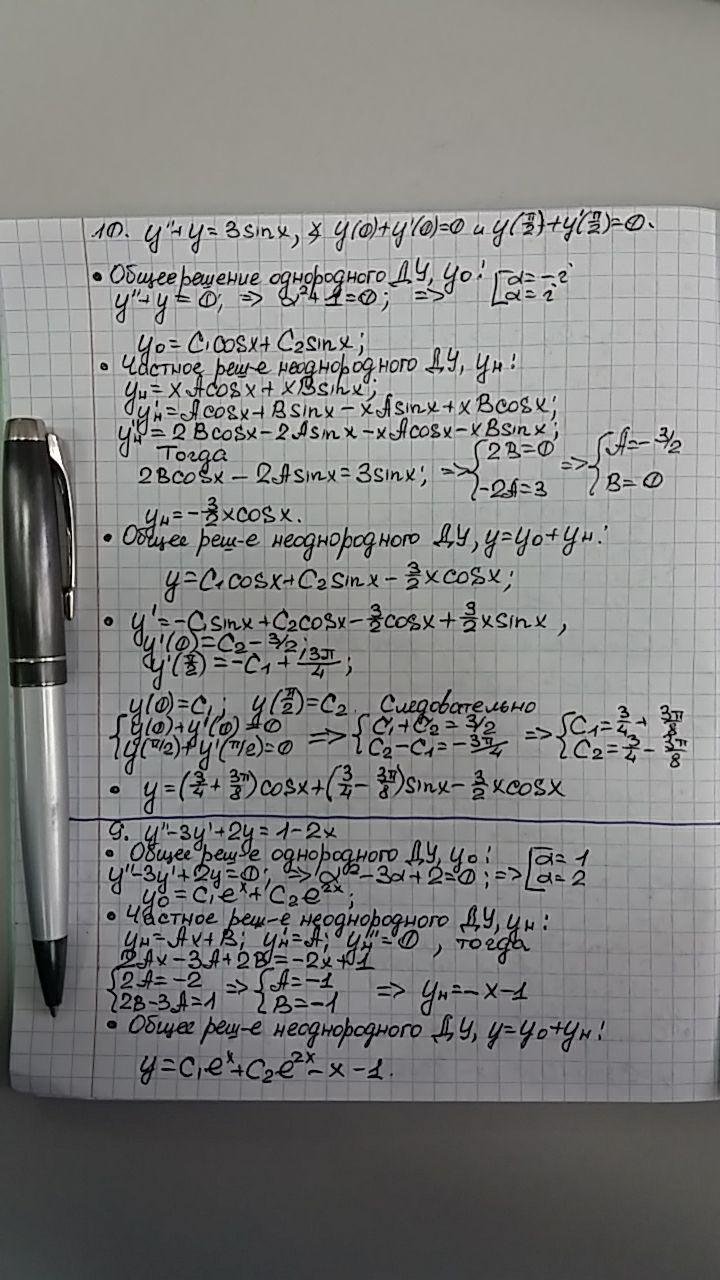 10. y''+y=3sinx, ∢ y(0)+y'(0)=0 и y(π/2)+y'(π/2)=0.
• Общее решение однородного ДУ, y₀:
y''+y=0; => a²+1=0; => [a=-i [a=i
y₀=C₁cosx+C₂sinx;
• Частное реш-е неоднородного ДУ, yн:
yн=xAcosx+xBsinx;
y'н=Acosx+Bsinx-xAsinx+xBcosx;
y''н=2Bcosx-2Asinx-xAcosx-xBsinx;
Тогда
2Bcosx-2Asinx=3sinx; => {2B=0 {-2A=3 => {A=-3/2 {B=0
yн=-3/2xcosx.
• Общее реш-е неоднородного ДУ, y=y₀+yн:
y=C₁cosx+C₂sinx-3/2xcosx;
• y'=-C₁sinx+C₂cosx-3/2cosx+3/2xsinx,
y'(0)=C₂-3/2;
y'(π/2)=-C₁+3π/4;
y(0)=C₁; y(π/2)=C₂. Следовательно
{y(0)+y'(0)=0 {y(π/2)+y'(π/2)=0 => {C₁+C₂=3/2 {C₂-C₁=-3π/4 => {C₁=3/4+3π/8 {C₂=3/4-3π/8
• y=(3/4+3π/8)cosx+(3/4-3π/8)sinx-3/2xcosx
9. y''-3y'+2y=1-2x
• Общее реш-е однородного ДУ, y₀:
y''-3y'+2y=0; => a²-3a+2=0; => [a=1 [a=2
y₀=C₁eˣ+C₂e²ˣ;
• Частное реш-е неоднородного ДУ, yн:
yн=Ax+B; y'н=A; y''н=0, тогда
2Ax-3A+2B=-2x+1
{2A=-2 {2B-3A=1 => {A=-1 {B=-1 => yн=-x-1
• Общее реш-е неоднородного ДУ, y=y₀+yн:
y=C₁eˣ+C₂e²ˣ-x-1.